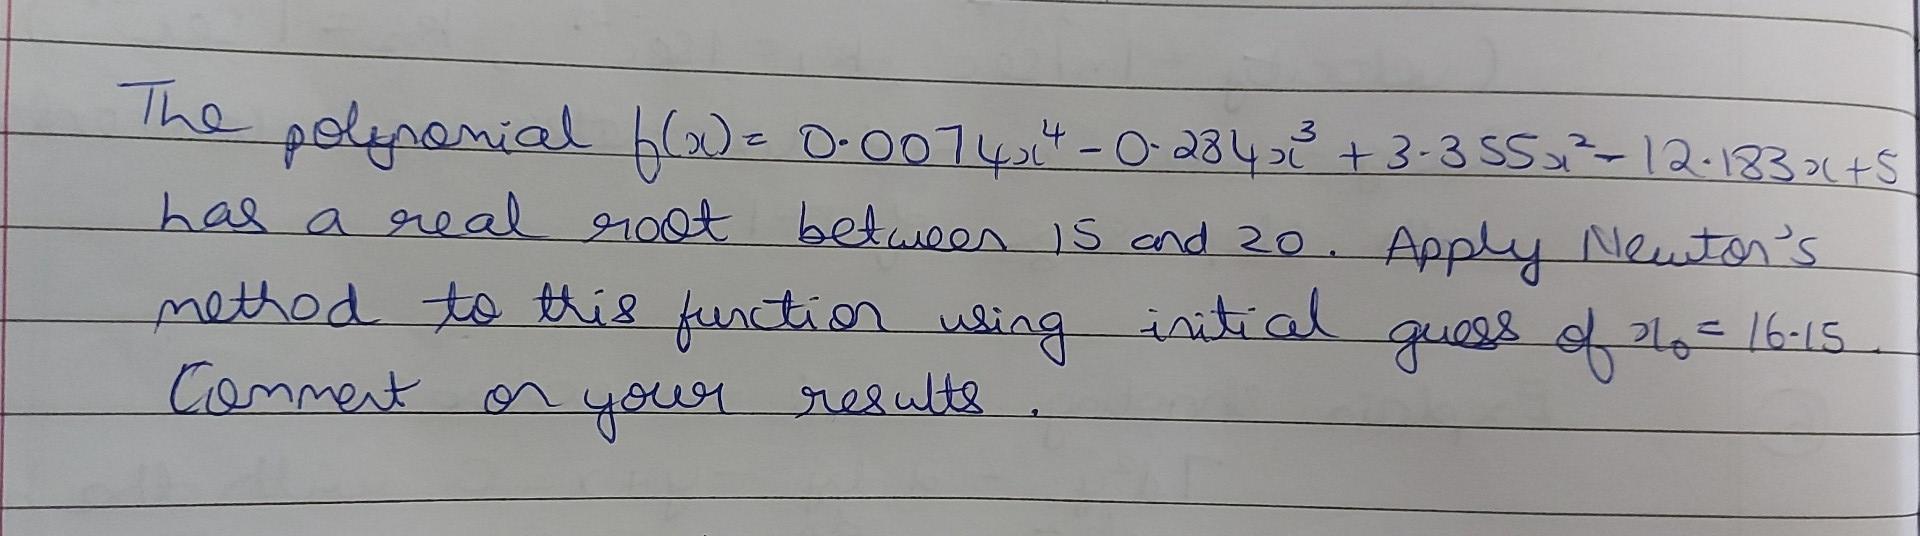 The polynomial f(x) = 0.0074x⁴ - 0.284x³ + 3.355x² - 12.183x + 5
has a real root between 15 and 20. Apply Newton's
method to this function using initial guess of x₀ = 16.15.
Comment on your results.